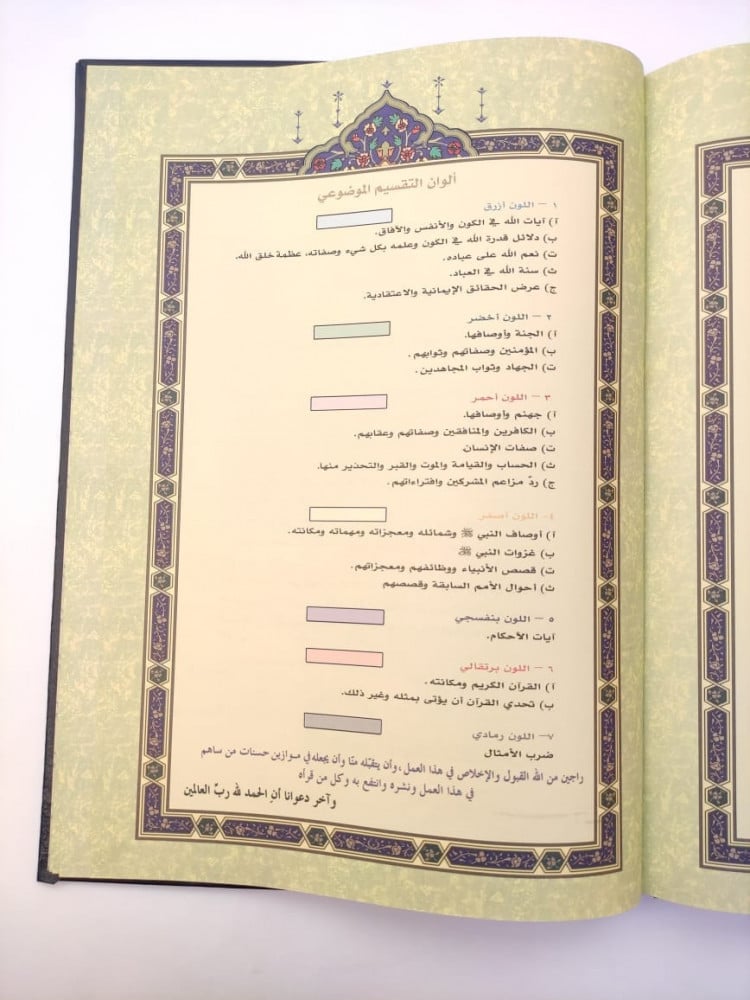 ألوان التقسيم الموضوعي
١ – اللون أزرق
أ) آيات الله في الكون والأنفس والآفاق.
ب) دلائل قدرة الله في الكون وعلمه بكل شيء وصفاته، عظمة خلق الله.
ت) نعم الله على عباده.
ث) سنة الله في العباد.
ج) عرض الحقائق الإيمانية والاعتقادية.
٢ – اللون أخضر
أ) الجنة وأوصافها.
ب) المؤمنين وصفاتهم وثوابهم.
ت) الجهاد وثواب المجاهدين.
٣ – اللون أحمر
أ) جهنم وأوصافها.
ب) الكافرين والمنافقين وصفاتهم وعقابهم.
ت) صفات الإنسان
ث) الحساب والقيامة والموت والقبر والتحذير منها.
ج) ردّ مزاعم المشركين وافتراءاتهم.
٤- اللون أصفر
أ) أوصاف النبي ﷺ وشمائله ومعجزاته ومهماته ومكانته.
ب) غزوات النبي ﷺ
ت) قصص الأنبياء ووظائفهم ومعجزاتهم.
ث) أحوال الأمم السابقة وقصصهم
٥ – اللون بنفسجي
آيات الأحكام.
٦ – اللون برتقالي
أ) القرآن الكريم ومكانته.
ب) تحدي القرآن أن يؤتى بمثله وغير ذلك.
٧– اللون رمادي
ضرب الأمثال
راجين من الله القبول والإخلاص في هذا العمل، وأن يتقبّله منّا وأن يجعله في موازين حسنات من ساهم
في هذا العمل ونشره وانتفع به وكل من قرأه
وآخر دعوانا أنِ الحمد لله ربّ العالمين